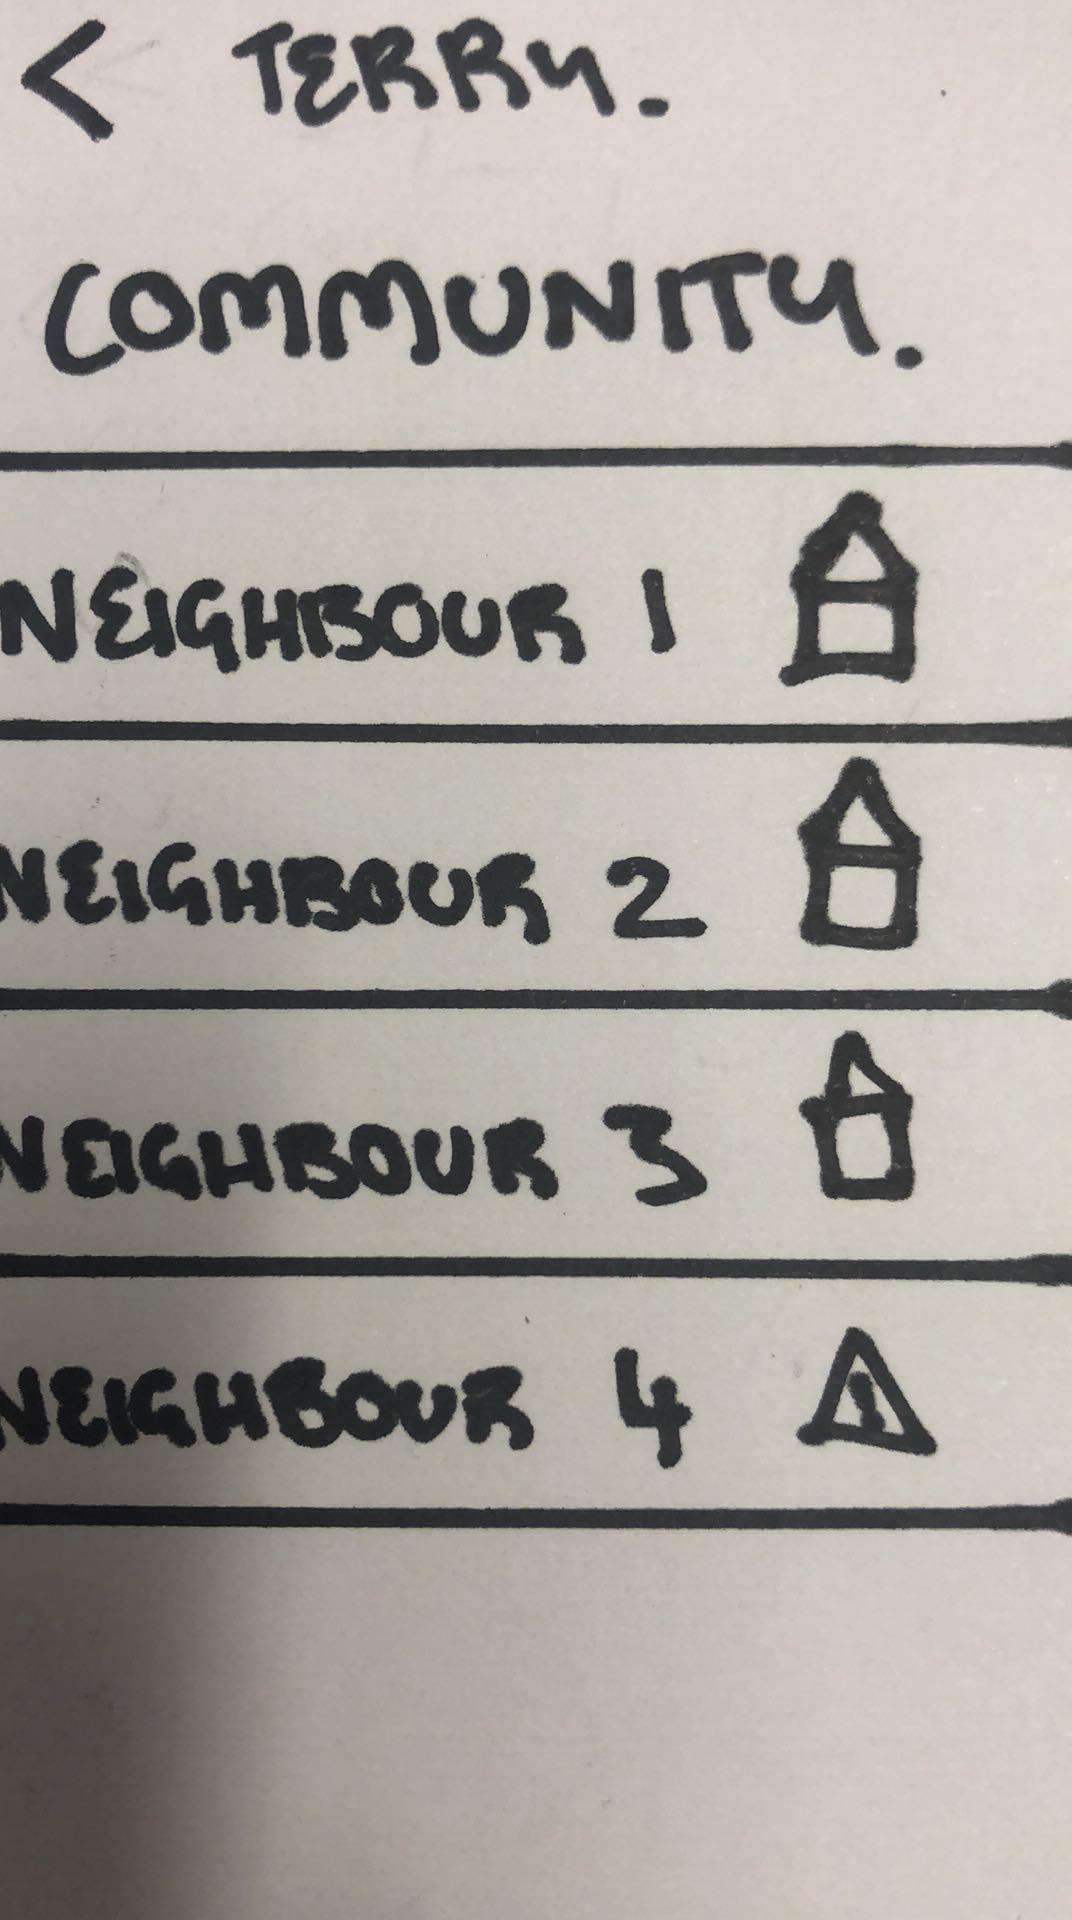 < TERRY.
COMMUNITY.
NEIGHBOUR 1
NEIGHBOUR 2
NEIGHBOUR 3
NEIGHBOUR 4